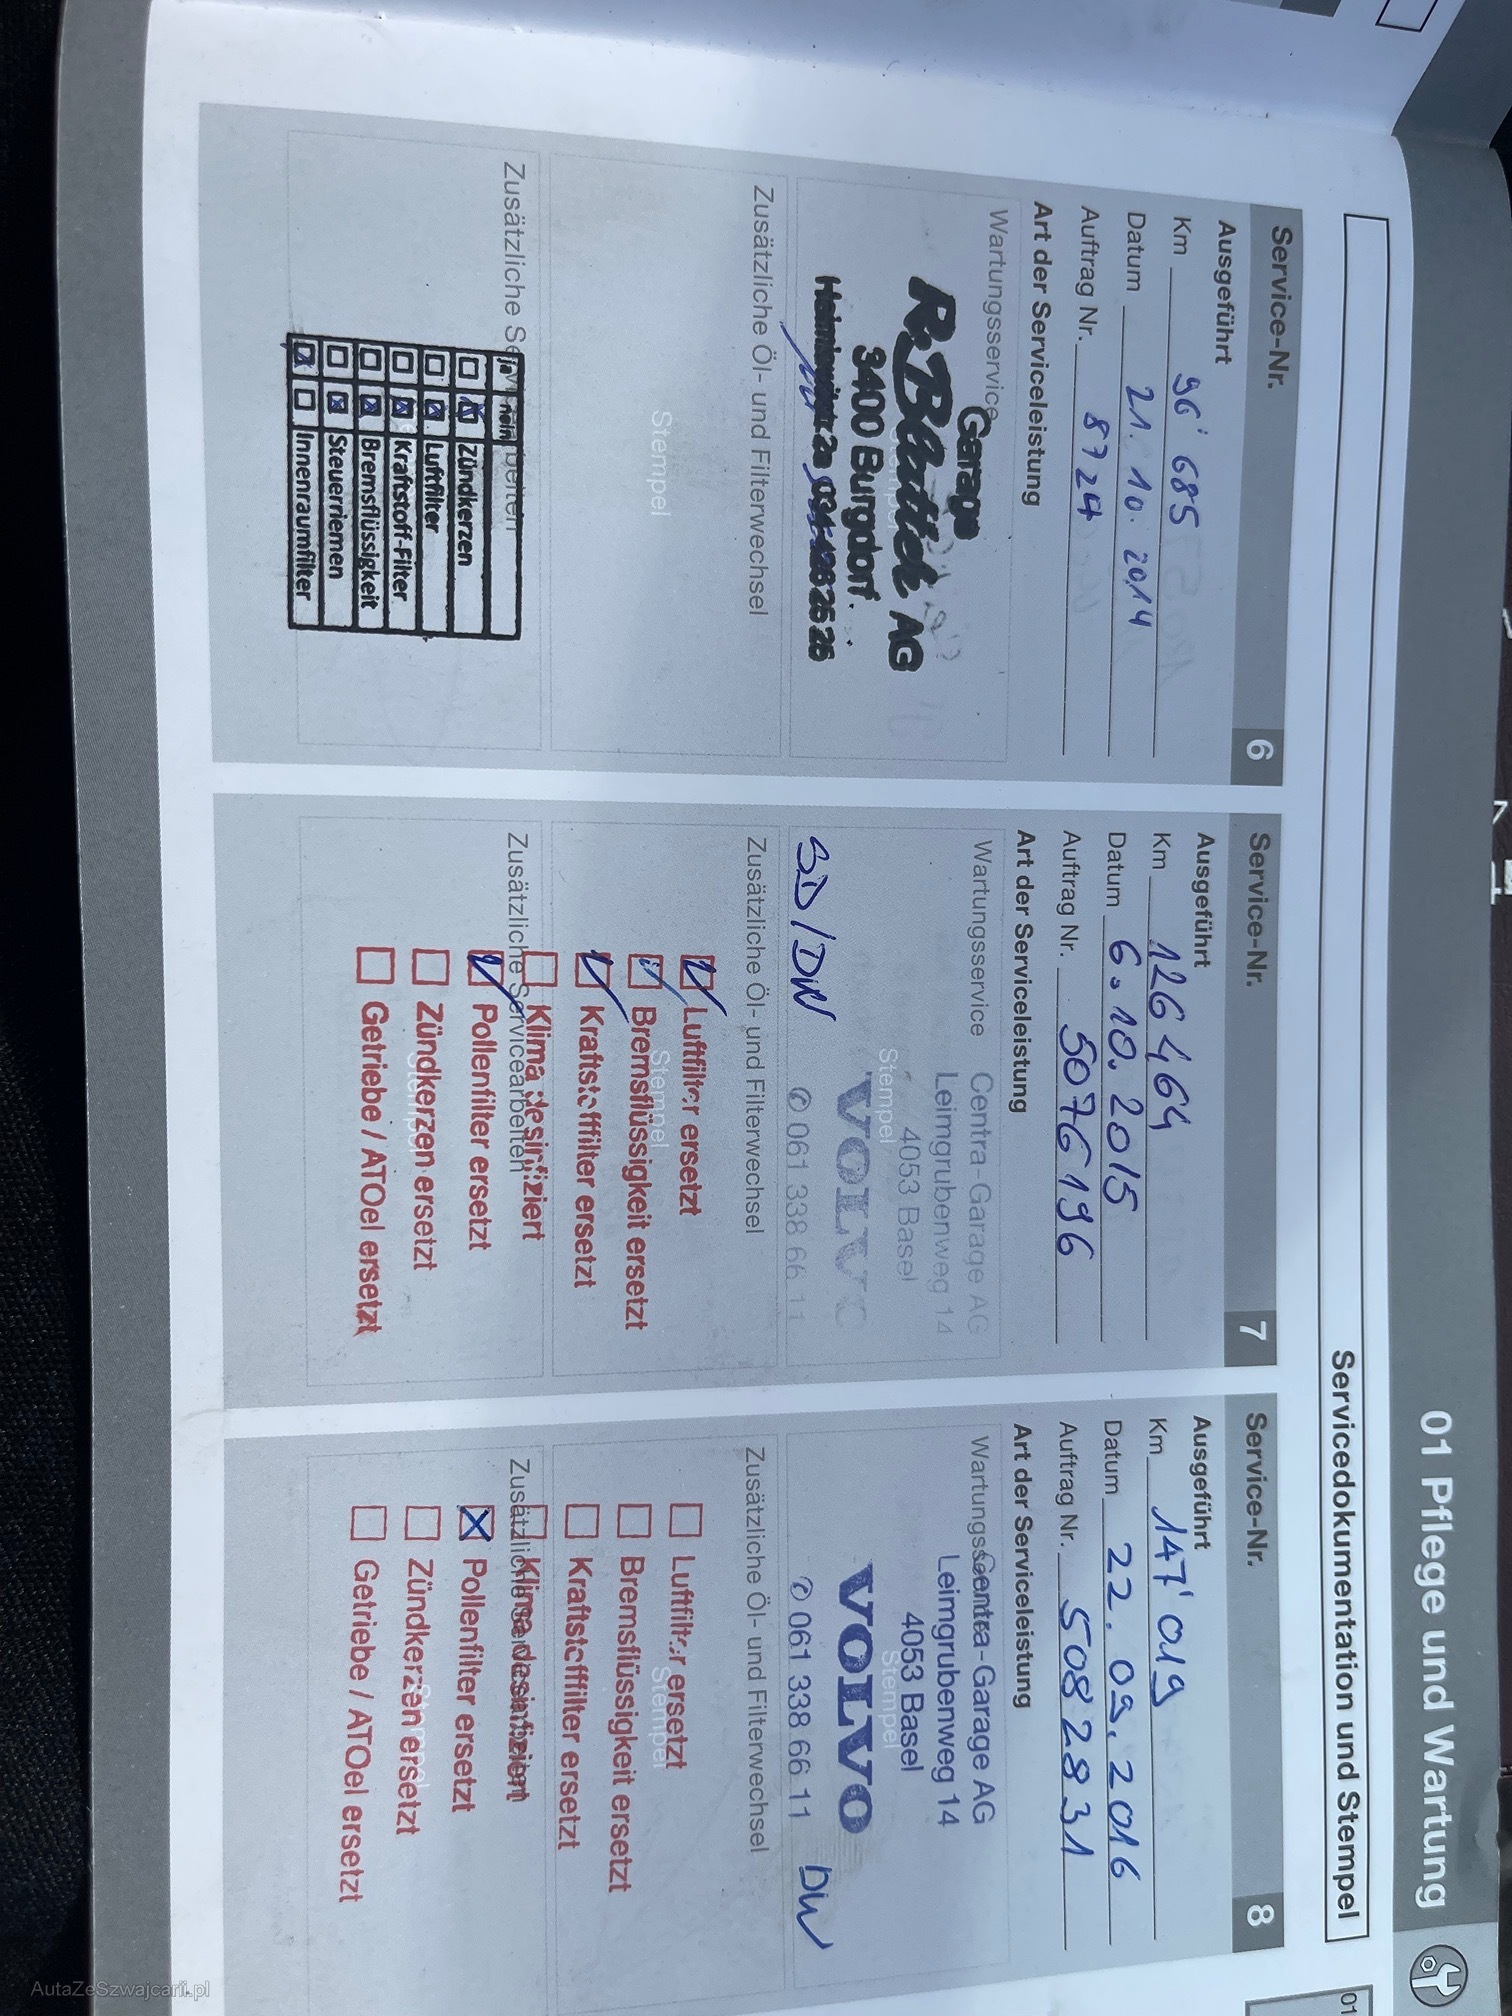 01 Pflege und Wartung
Servicedokumentation und Stempel
01
Service-Nr. 6
Ausgeführt
Km 96'685
Datum 21.10.2014
Auftrag Nr. 8724
Art der Serviceleistung
Wartungsservice
Garage
R. Blattch AG
3400 Burgdorf
Zusätzliche Öl- und Filterwechsel
Stempel
Zusätzliche Servicearbeiten
ja nein
Zündkerzen
Luftfilter
Kraftstoff-Filter
Bremsflüssigkeit
Steuerriemen
Innenraumfilter
Service-Nr. 7
Ausgeführt
Km 126464
Datum 6.10.2015
Auftrag Nr. 5076196
Art der Serviceleistung
Wartungsservice
Centra-Garage AG
Leimgrubenweg 14
4053 Basel
Stempel
VOLVO
SD/DW
✆ 061 338 66 11
Zusätzliche Öl- und Filterwechsel
Luftfilter ersetzt
Stempel
Bremsflüssigkeit ersetzt
Kraftstofffilter ersetzt
Klima desinfiziert
Zusätzliche Servicearbeiten
Pollenfilter ersetzt
Zündkerzen ersetzt
Stempel
Getriebe / ATOel ersetzt
Service-Nr. 8
Ausgeführt
Km 147'019
Datum 22.09.2016
Auftrag Nr. 5082831
Art der Serviceleistung
Wartungsservice
Centra-Garage AG
Leimgrubenweg 14
4053 Basel
Stempel
VOLVO
✆ 061 338 66 11 DW
Zusätzliche Öl- und Filterwechsel
Luftfilter ersetzt
Stempel
Bremsflüssigkeit ersetzt
Kraftstofffilter ersetzt
Klima desinfiziert
Zusätzliche Servicearbeiten
Pollenfilter ersetzt
Zündkerzen ersetzt
Stempel
Getriebe / ATOel ersetzt
AutaZeSzwajcarii.pl